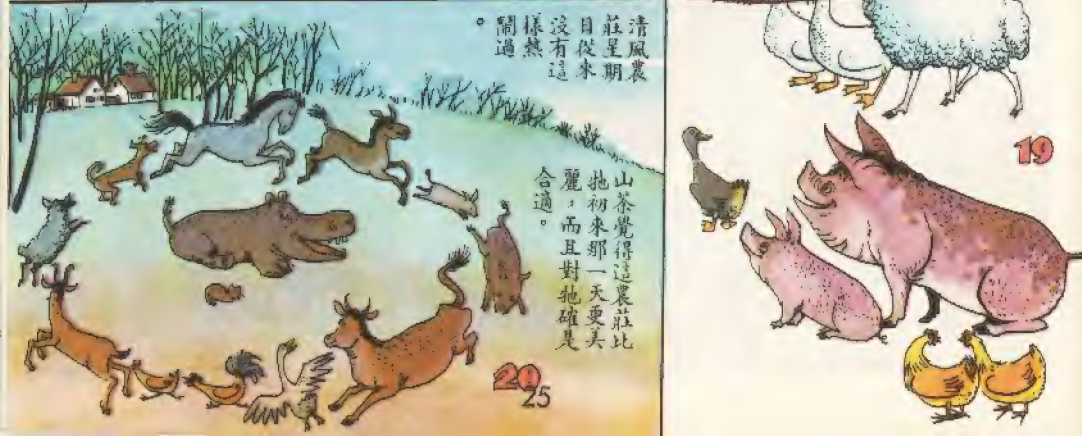 清風農
莊星期
日從來
沒有這
樣熱
鬧過
。
山茶覺得這農莊比
牠初來那一天更美
麗，而且對牠確是
合適。
20
25
19